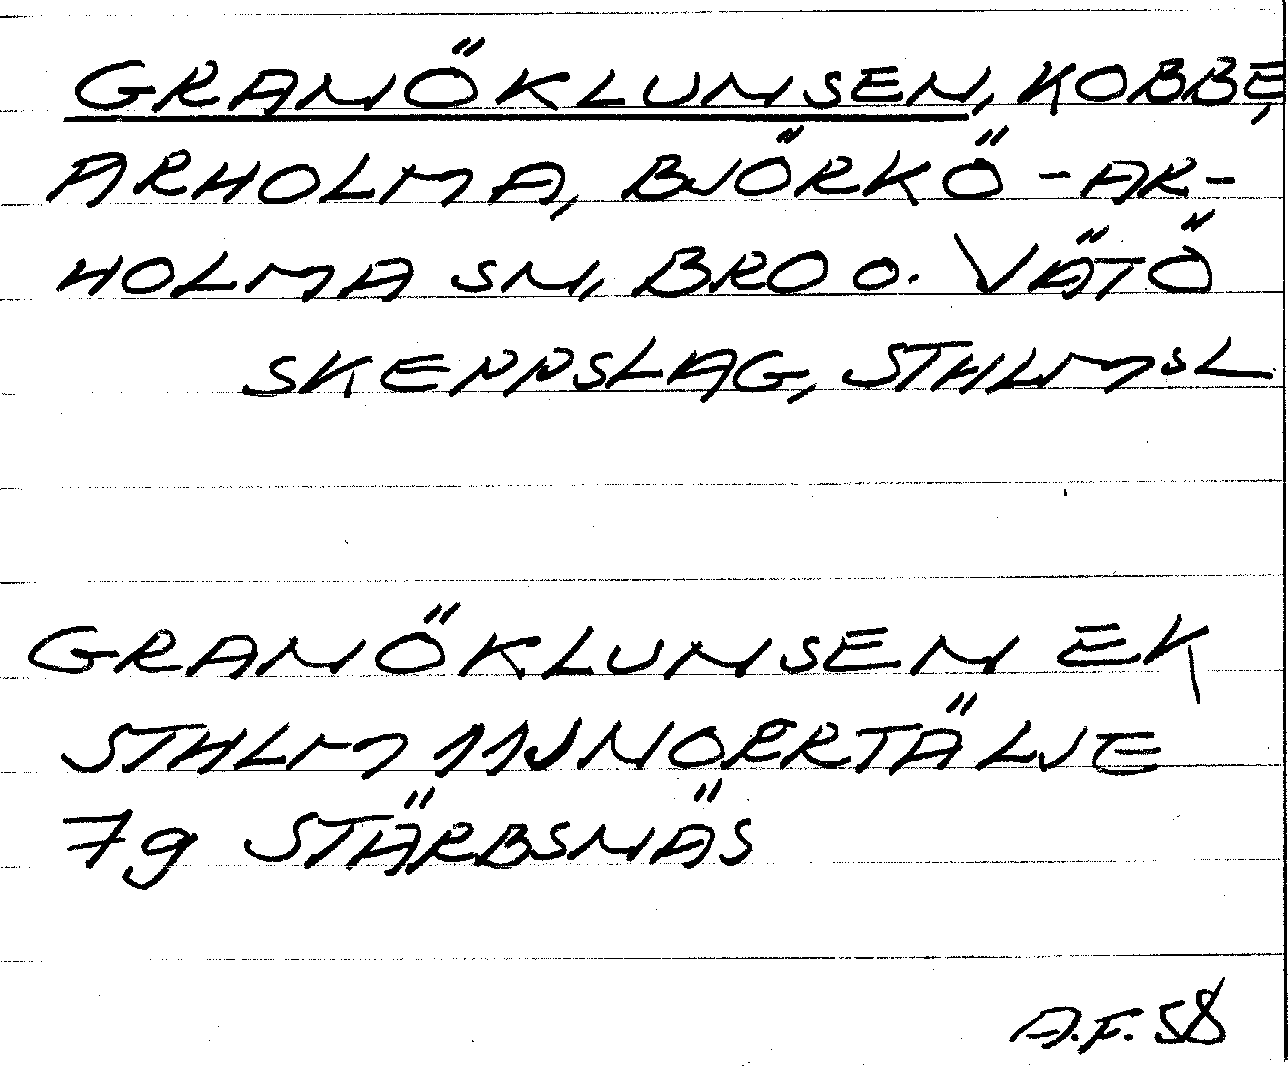 GRANÖKLUNSEN, KOBBE,
ARHOLMA, BJÖRKÖ-AR-
HOLMA SN, BRO O. VÄTÖ
SKEPPSLAG, STHLMSL
GRANÖKLUNSEN EK
STHLM 11J NORRTÄLJE
7g STÄRBSNÄS
A.F. 58